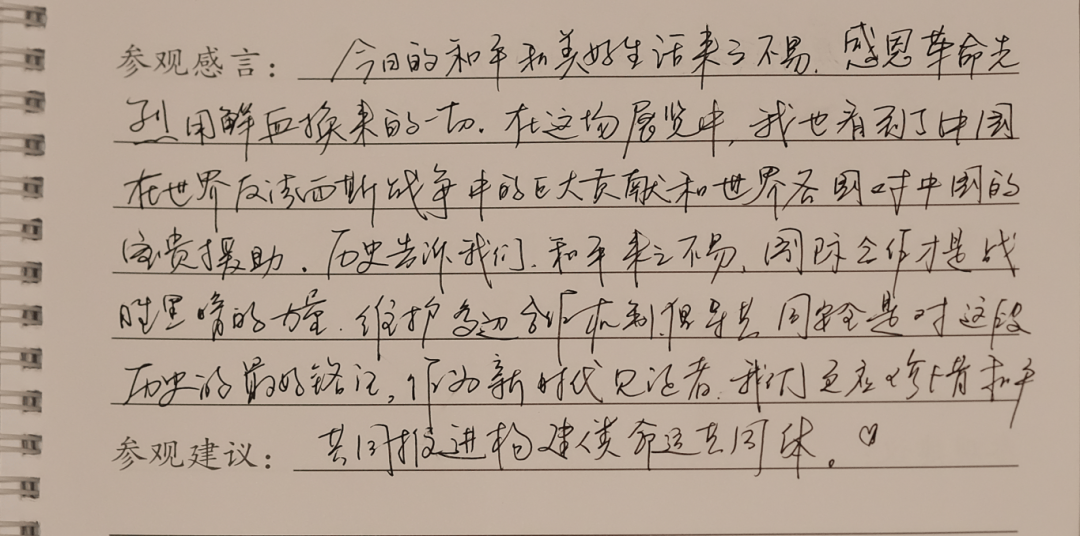 参观感言：今日的和平和美好生活来之不易，感恩革命先
烈用鲜血换来的一切。在这场展览中，我也看到了中国
在世界反法西斯战争中的巨大贡献和世界各国对中国的
宝贵援助。历史告诉我们，和平来之不易，国际合作才是战
胜黑暗的力量，维护多边合作机制，倡导共同安全是对这段
历史的最好铭记，作为新时代见证者，我们更应珍惜和平
参观建议：共同推进构建人类命运共同体。♡